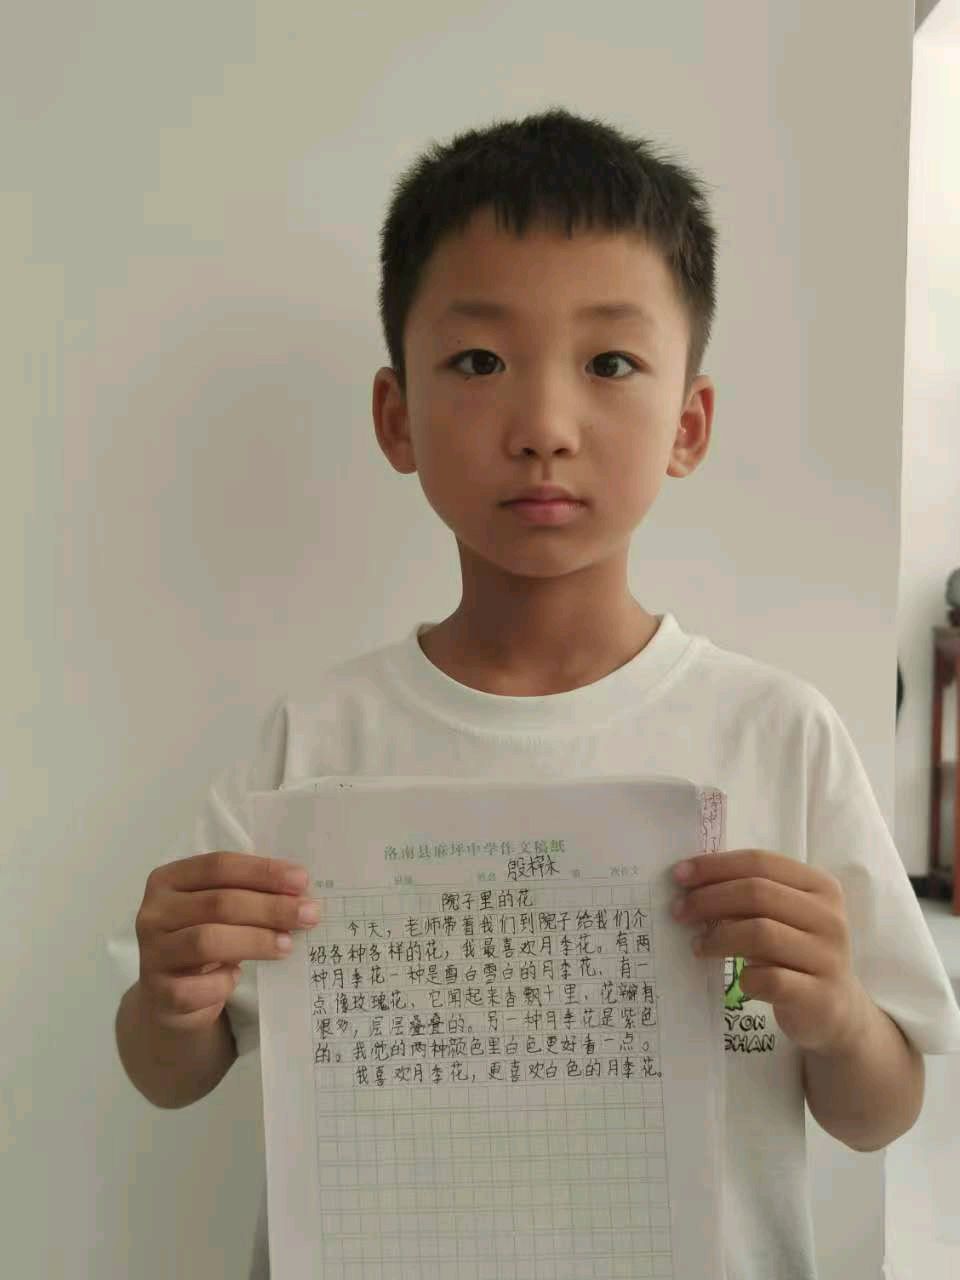 洛南县麻坪中学作文稿纸
年级 班级 姓名 殷梓木 第 次作文
院子里的花
今天，老师带着我们到院子给我们介
绍各种各样的花，我最喜欢月季花。有两
种月季花一种是雪白雪白的月季花，有一
点像玫瑰花，它闻起来香飘十里，花瓣有
很多，层层叠叠的。另一种月季花是紫色
的。我觉的两种颜色里白色更好看一点。
我喜欢月季花，更喜欢白色的月季花。
YON
CHAN